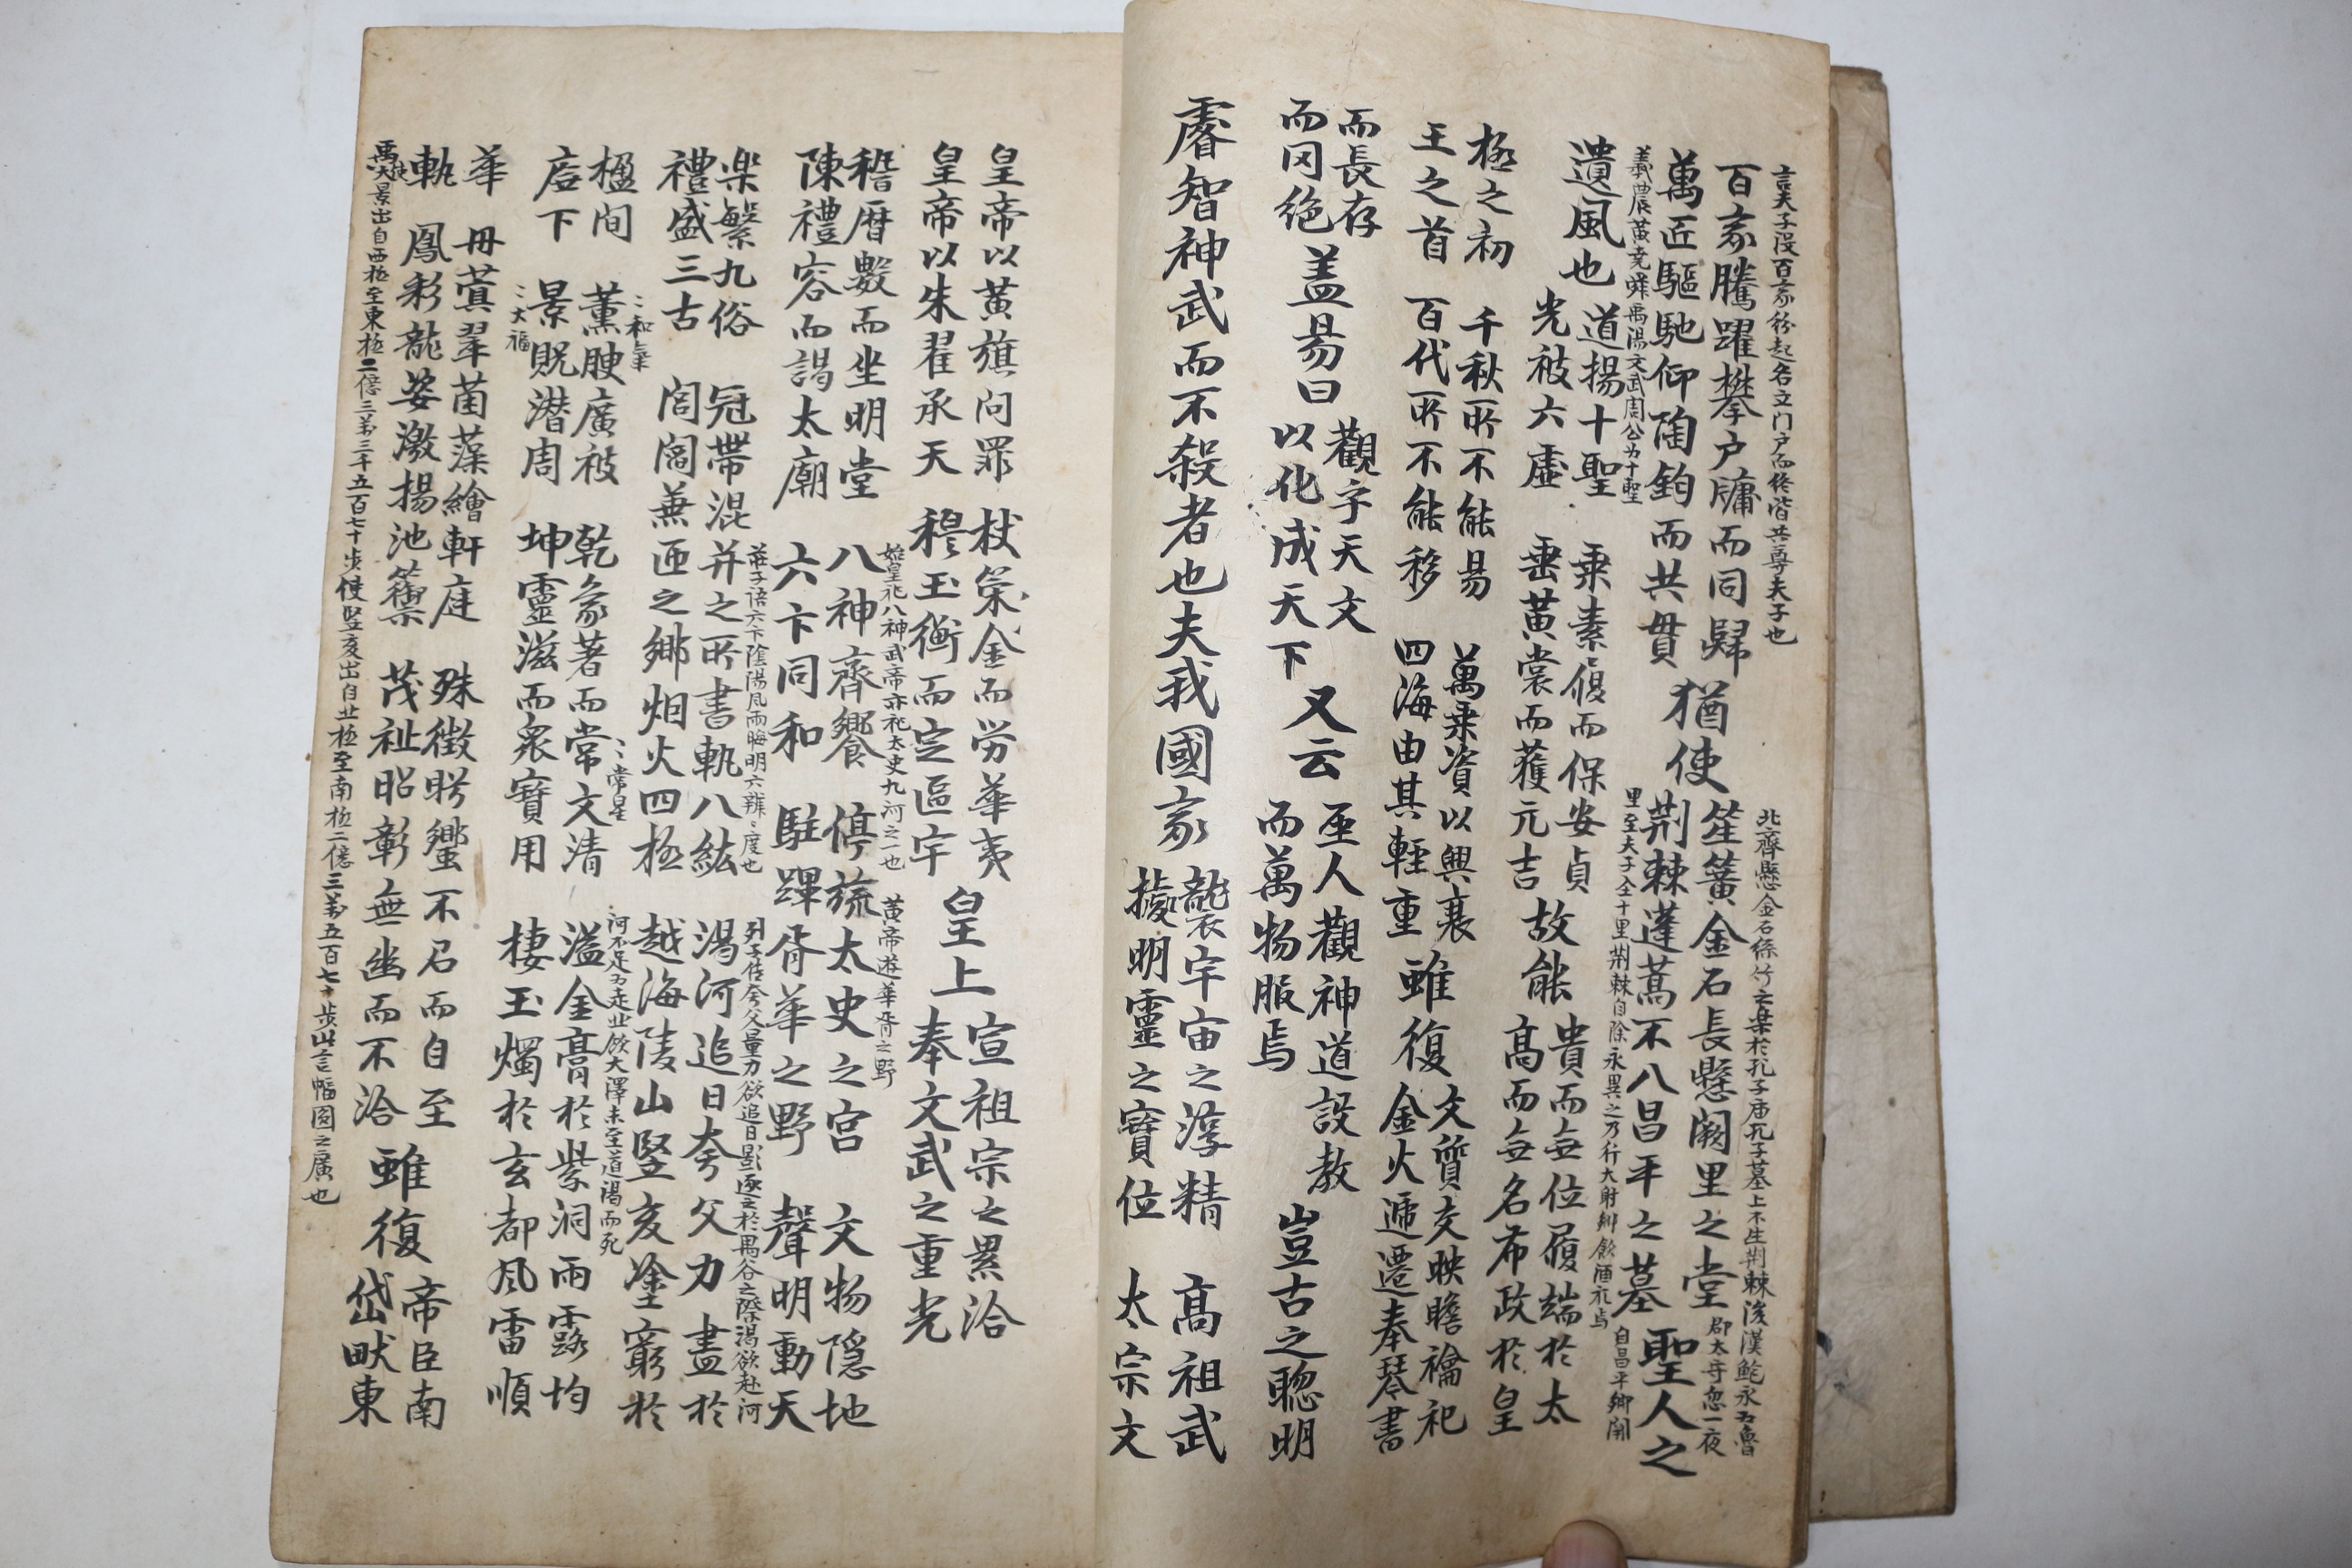 言夫子没百家紛起名立门户而終皆共尊夫子也
百家騰躍攀户牖而同歸
萬匠驅馳仰陶鈞而共貫
猶使
北齊懸金石絲竹之樂於孔子庙孔子墓上不生荆棘後漢鮑永为魯
郡太守忽一夜
笙簧金石長懸闕里之堂
荆棘蓬蒿不入昌平之墓
里至夫子全十里荆棘自除永異之乃行大射鄉飲酒礼焉
自昌平鄉闕
聖人之
義農黄尭舜禹湯文武周公为十聖
遺風也
道揚十聖
光被六虚
乗素履而保安貞
垂黄裳而獲元吉
故能
貴而無位履端於太
高而無名布政於皇
極之初
王之首
千秋所不能易
百代所不能移
萬乗資以興衰
四海由其輕重
雖復
文質交映瞻禴祀
金火遞遷奉琴書
而長存
而罔绝
盖易曰
觀字天文
以化成天下
又云
至人觀神道設教
而萬物服焉
豈古之聡明
睿智神武而不殺者也夫我國家
襲宇宙之淳精
據明靈之寶位
高祖武
太宗文
皇帝以黄旗问罪
皇帝以朱翟承天
杖策金而勞華夷
穆玉衡而定區宇
皇上
宣祖宗之累洽
奉文武之重光
稽暦數而坐明堂
陳禮容而謁太廟
始皇礼八神武帝亦礼太史九河之一也
八神齊饗
六卞同和
莊子语六卞陰陽風雨晦明六辨〻度也
黄帝遊華胥之野
停旒太史之宫
駐蹕胥華之野
文物隱地
聲明動天
楽繁九俗
禮盛三古
冠帶混并之所書軌八紘
閭閻兼匝之鄉烟火四極
列子传夸父量力欲追日影逐之於禺谷之際渇欲赴河
渇河追日夸父力盡於
越海陵山竪亥塗窮於
河不足为走北飲大澤未至道渇而死
楹间
启下
〻和气
薫腴廣被
景貺潜周
〻大福
乾象著而常文清
坤靈滋而衆寶用
〻常星
溢金膏於紫洞雨露均
棲玉燭於玄都风雷順
華
軌
毋蓂翠莆藻繪軒庭
鳳彩龍姿激揚池籞
殊徵肸蠁不召而自至
茂祉昭彰無幽而不洽
雖復
帝臣南
岱畎東
禹使大景出自西極至東極二億三萬三千五百七十步使竪亥出自北極至南極二億三萬五百七十步此言幅圎之廣也